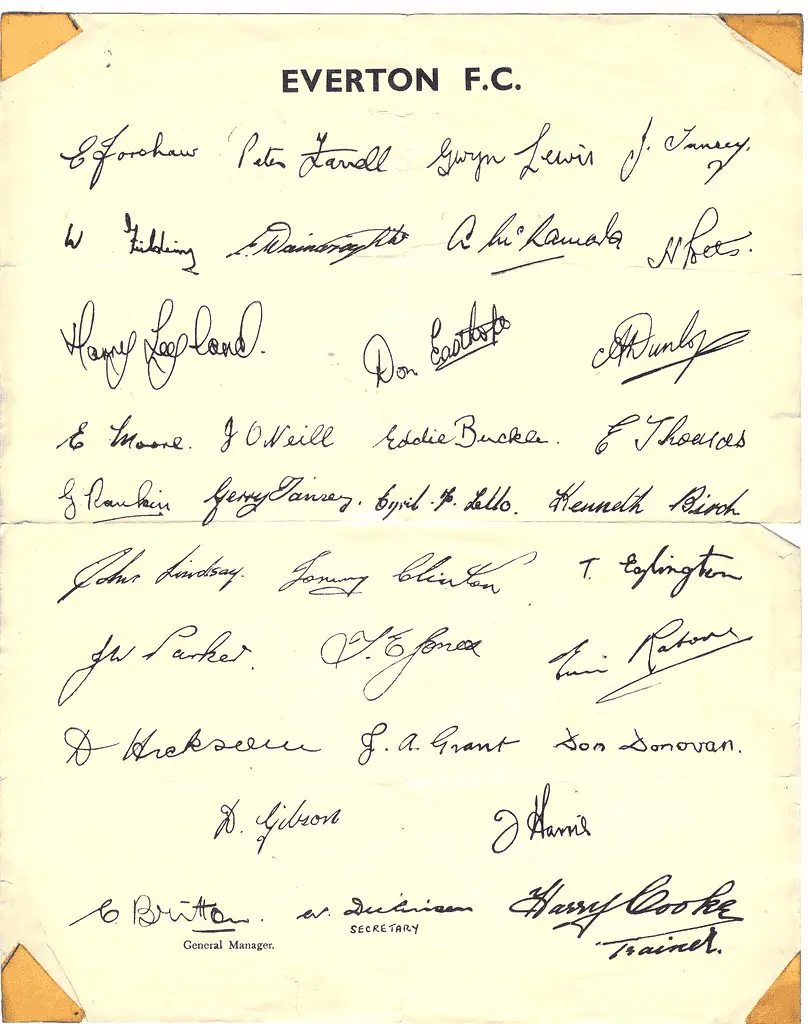 EVERTON F.C.
E Forshaw Peter Farrell Gwyn Lewis J. Tansey.
W Fielding E. Wainwright A McNamara H Potts.
Harry Leyland. Don Easthope A Dunlop
E Moore. J O'Neill Eddie Buckle. E Thomas
G Rankin Gerry Tansey. Cyril F. Lello. Kenneth Birch
John Lindsay. Tommy Clinton T. Eglington
JW Parker. T. E Jones Rabone
D Hickson J. A. Grant Don Donovan.
D. Gibson J Harris
C. Britton. W. Dickinson Harry Cooke
General Manager. SECRETARY Trainer.